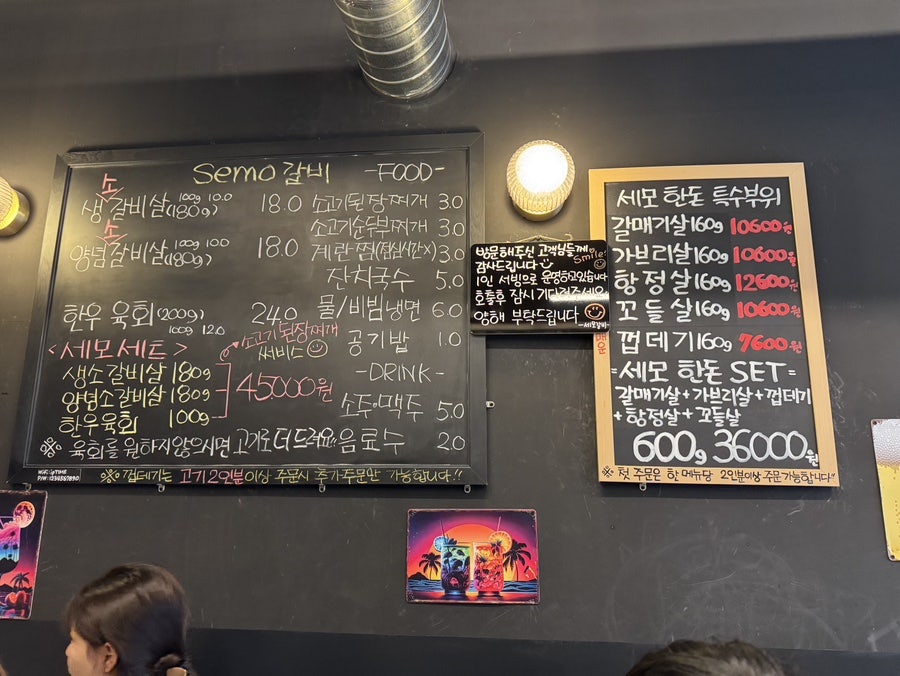 Semo 갈비 -FOOD-
소
생갈비살 (180g) 100g 10.0 18.0
소
양념갈비살 (180g) 100g 10.0 18.0
한우 육회 (200g) 24.0
100g 12.0
<세모세트>
소고기된장찌개
써비스
생소갈비살 180g
양념소갈비살 180g
한우육회 100g
45000원
※ 육회를 원하지않으시면 고기로 더 드려요!!
소고기된장찌개 3.0
소고기순두부찌개 3.0
계란찜(점심시간X) 3.0
잔치국수 5.0
물/비빔냉면 6.0
공기밥 1.0
-DRINK-
소주·맥주 5.0
음료수 2.0
※ 껍데기는 고기2인분이상 주문시 추가주문만 가능합니다!!
방문해주신 고객분들께
감사드립니다 Smile!
1인 서빙으로 운영하고있습니다
호출후 잠시 기다려주세요
양해 부탁드립니다
-세모갈비-
세모 한돈 특수부위
갈매기살 160g 10600원
가브리살 160g 10600원
항정살 160g 12600원
꼬들살 160g 10600원
껍데기 160g 7600원
=세모 한돈 SET=
갈매기살+가브리살+껍데기
+항정살+꼬들살
600g 36000원
※ 첫 주문은 한 메뉴당 2인분이상 주문가능합니다!!